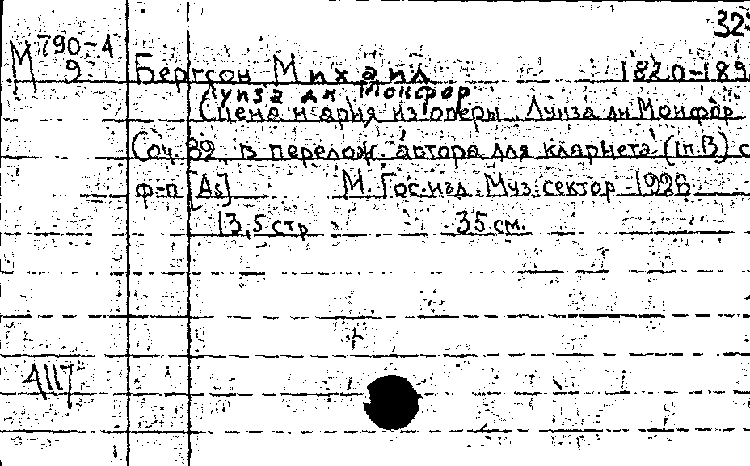 32
М 790-4
9
Бергсон Михаил 1820-189
Луиза ди Монфор
Сцена и ария из оперы "Луиза ди Монфор
Соч. 82 в перелож. автора для кларнета (in B) с
ф-п [As] М. Гос. изд. Муз. сектор 1926
13,5 стр 35 см.
4117